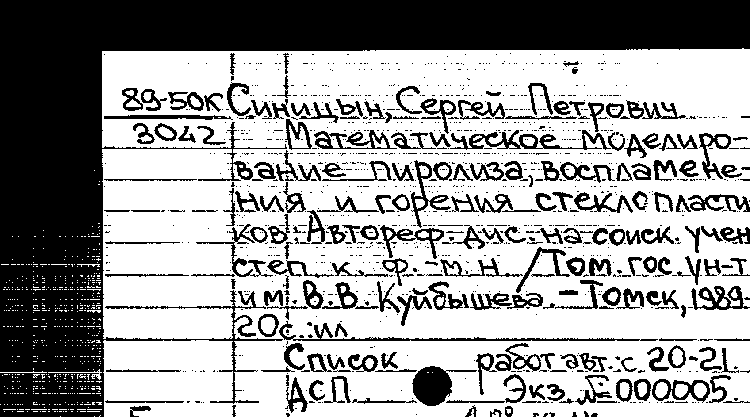 89-50к Синицын, Сергей Петрович
3042 Математическое моделиро-
вание пиролиза, воспламене-
ния и горения стеклопласти
ков: Автореф. дис. на соиск. учен
степ. к. ф.-м. н. / Том. гос. ун-т
им. В. В. Куйбышева. - Томск, 1989.
20 с.: ил
Список работ авт.: с 20-21
ДСП. Экз. №000005